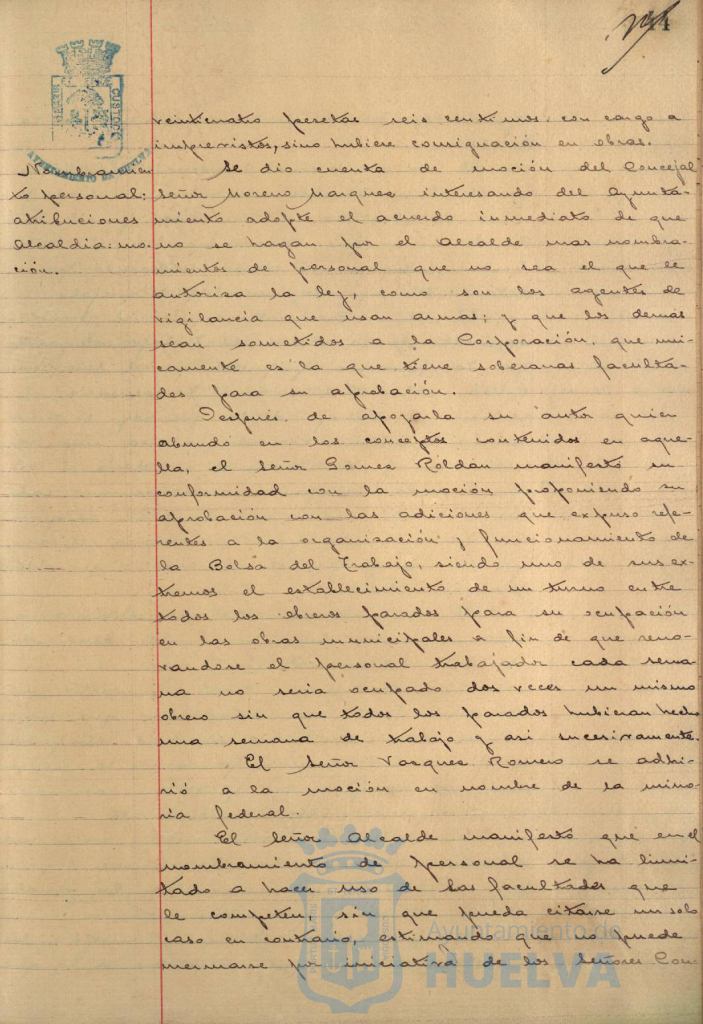 44
CUSTODIO
AYUNTAMIENTO DE HUELVA
veinticuatro pesetas seis centimos, con cargo a
imprevistos, sino hubiere consignación en obras.
Nombramien-
to personal;
atribuciones
Alcaldia: mo-
ción.
Se dio cuenta de moción del Concejal
Señor Moreno Marquez interesando del Ayunta-
miento adopte el acuerdo inmediato de que
no se hagan por el Alcalde mas nombra-
mientos de personal que no sea el que le
autoriza la ley, como son los agentes de
vigilancia que usan armas; y que los demás
sean sometidos a la Corporación, que uni-
camente es la que tiene soberanas faculta-
des para su aprobación.
Después de apoyarla su autor quien
abundó en los conceptos contenidos en aque-
lla, el Señor Gomez Roldán manifestó su
conformidad con la moción proponiendo su
aprobación con las adiciones que expuso refe-
rentes a la organización y funcionamiento de
la Bolsa del Trabajo, siendo uno de sus ex-
tremos el establecimiento de un turno entre
todos los obreros parados para su ocupación
en las obras municipales a fin de que reno-
vandose el personal trabajador cada sema-
na no seria ocupado dos veces un mismo
obrero sin que todos los parados hubieran hecho
una semana de trabajo y asi sucesivamente.
El Señor Vazquez Romero se adhi-
rió a la moción en nombre de la mino-
ria federal.
El Señor Alcalde manifestó que en el
nombramiento de personal se ha limi-
tado a hacer uso de las facultades que
le competen, sin que pueda citarse un solo
caso en contrario, estimando que no puede
mermarse por iniciativa de los Señores Con-
Ayuntamiento de
HUELVA